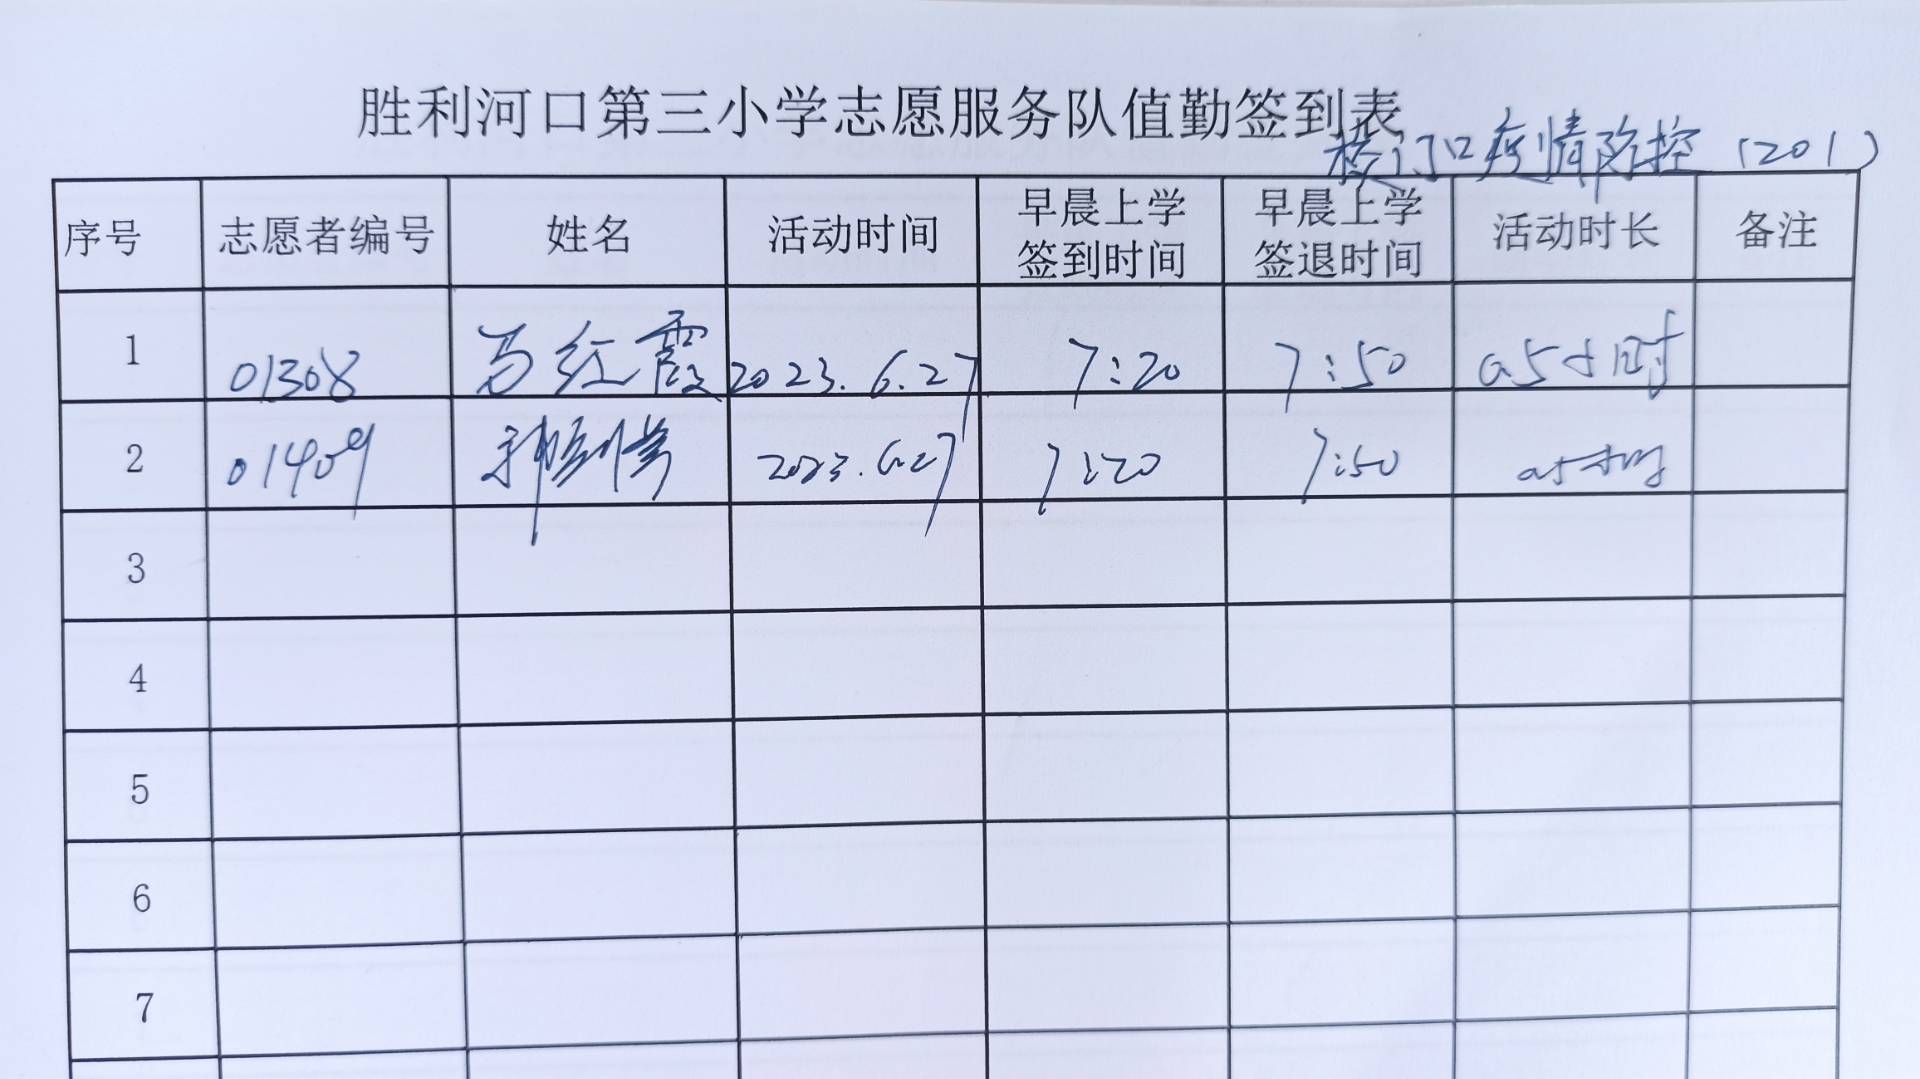 胜利河口第三小学志愿服务队值勤签到表
校门口疫情防控（201）
序号 志愿者编号 姓名 活动时间 早晨上学签到时间 早晨上学签退时间 活动时长 备注
1 01308 马红霞 2023.6.27 7:20 7:50 0.5小时
2 01409 2023.6.27 7:20 7:50 0.5小时
3
4
5
6
7